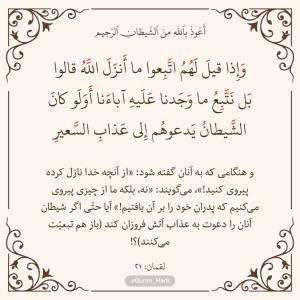 أَعوذُ بِاللهِ مِنَ الشَّيطانِ الرَّجيمِ
وَإِذا قيلَ لَهُمُ اتَّبِعوا ما أَنزَلَ اللَّهُ قالوا
بَل نَتَّبِعُ ما وَجَدنا عَلَيهِ آباءَنا أَوَلَو كانَ
الشَّيطانُ يَدعوهُم إِلى عَذابِ السَّعيرِ
و هنگامی که به آنان گفته شود: «از آنچه خدا نازل کرده
پیروی کنید!»، می‌گویند: «نه، بلکه ما از چیزی پیروی
می‌کنیم که پدران خود را بر آن یافتیم!» آیا حتّی اگر شیطان
آنان را دعوت به عذاب آتش فروزان کند (باز هم تبعیّت
می‌کنند)؟!
لقمان: ۲۱
@Quran_Hadi